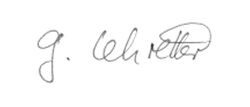 G. Schretter